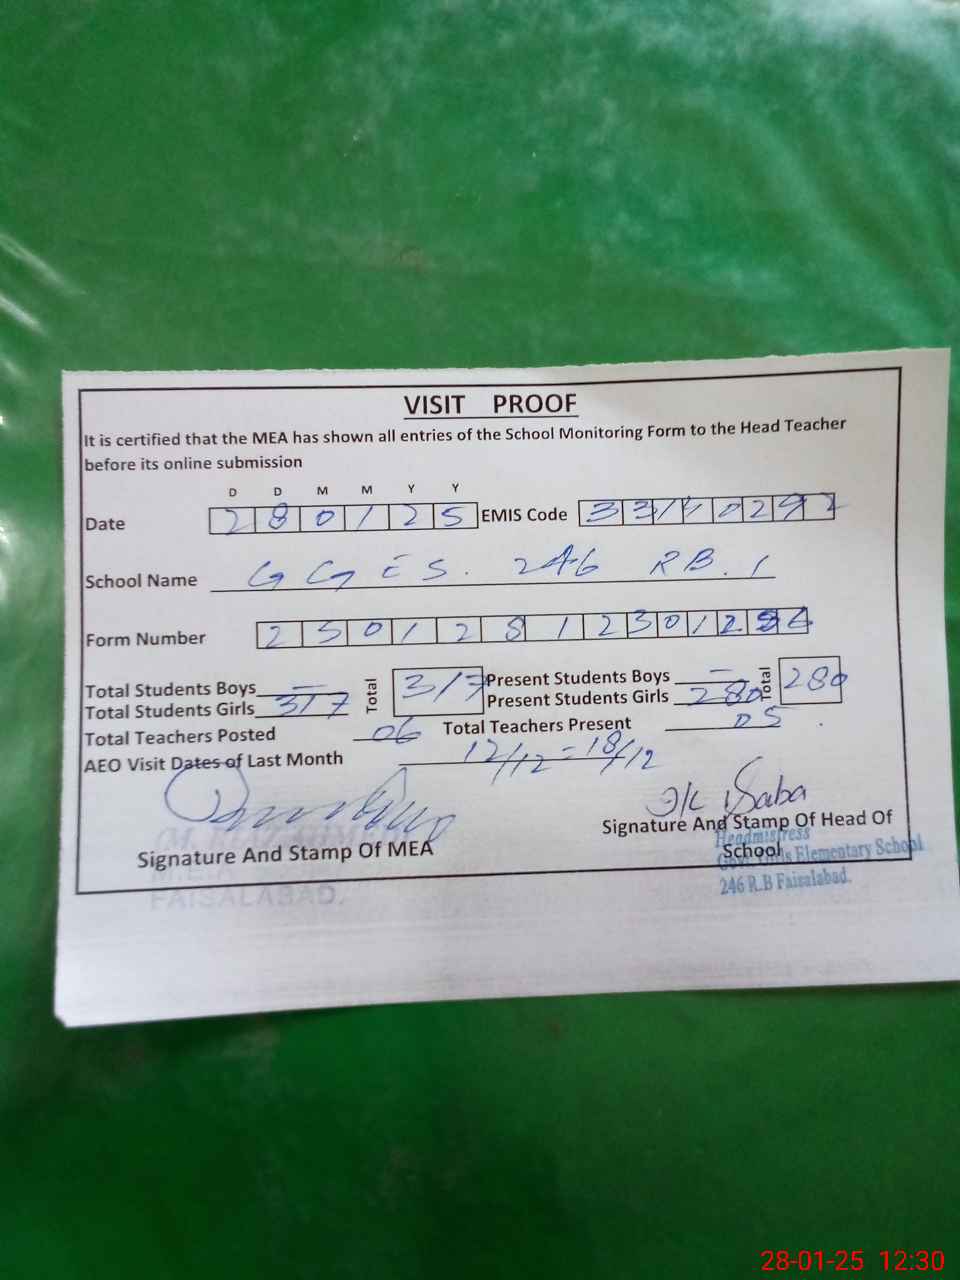 VISIT PROOF
It is certified that the MEA has shown all entries of the School Monitoring Form to the Head Teacher
before its online submission
D D M M Y Y
Date 280125 EMIS Code
School Name GGES. 246 RB. 1
Form Number
Total Students Boys — Total 317 Present Students Boys — Total 280
Total Students Girls 317 Present Students Girls 280
Total Teachers Posted 06 Total Teachers Present 05
AEO Visit Dates of Last Month 12/12 = 18/12
Saba
Signature And Stamp Of MEA
Signature And Stamp Of Head Of
School
M.E.A
FAISALABAD.
Headmistress
Govt. Girls Elementary School
246 R.B Faisalabad.
28-01-25 12:30